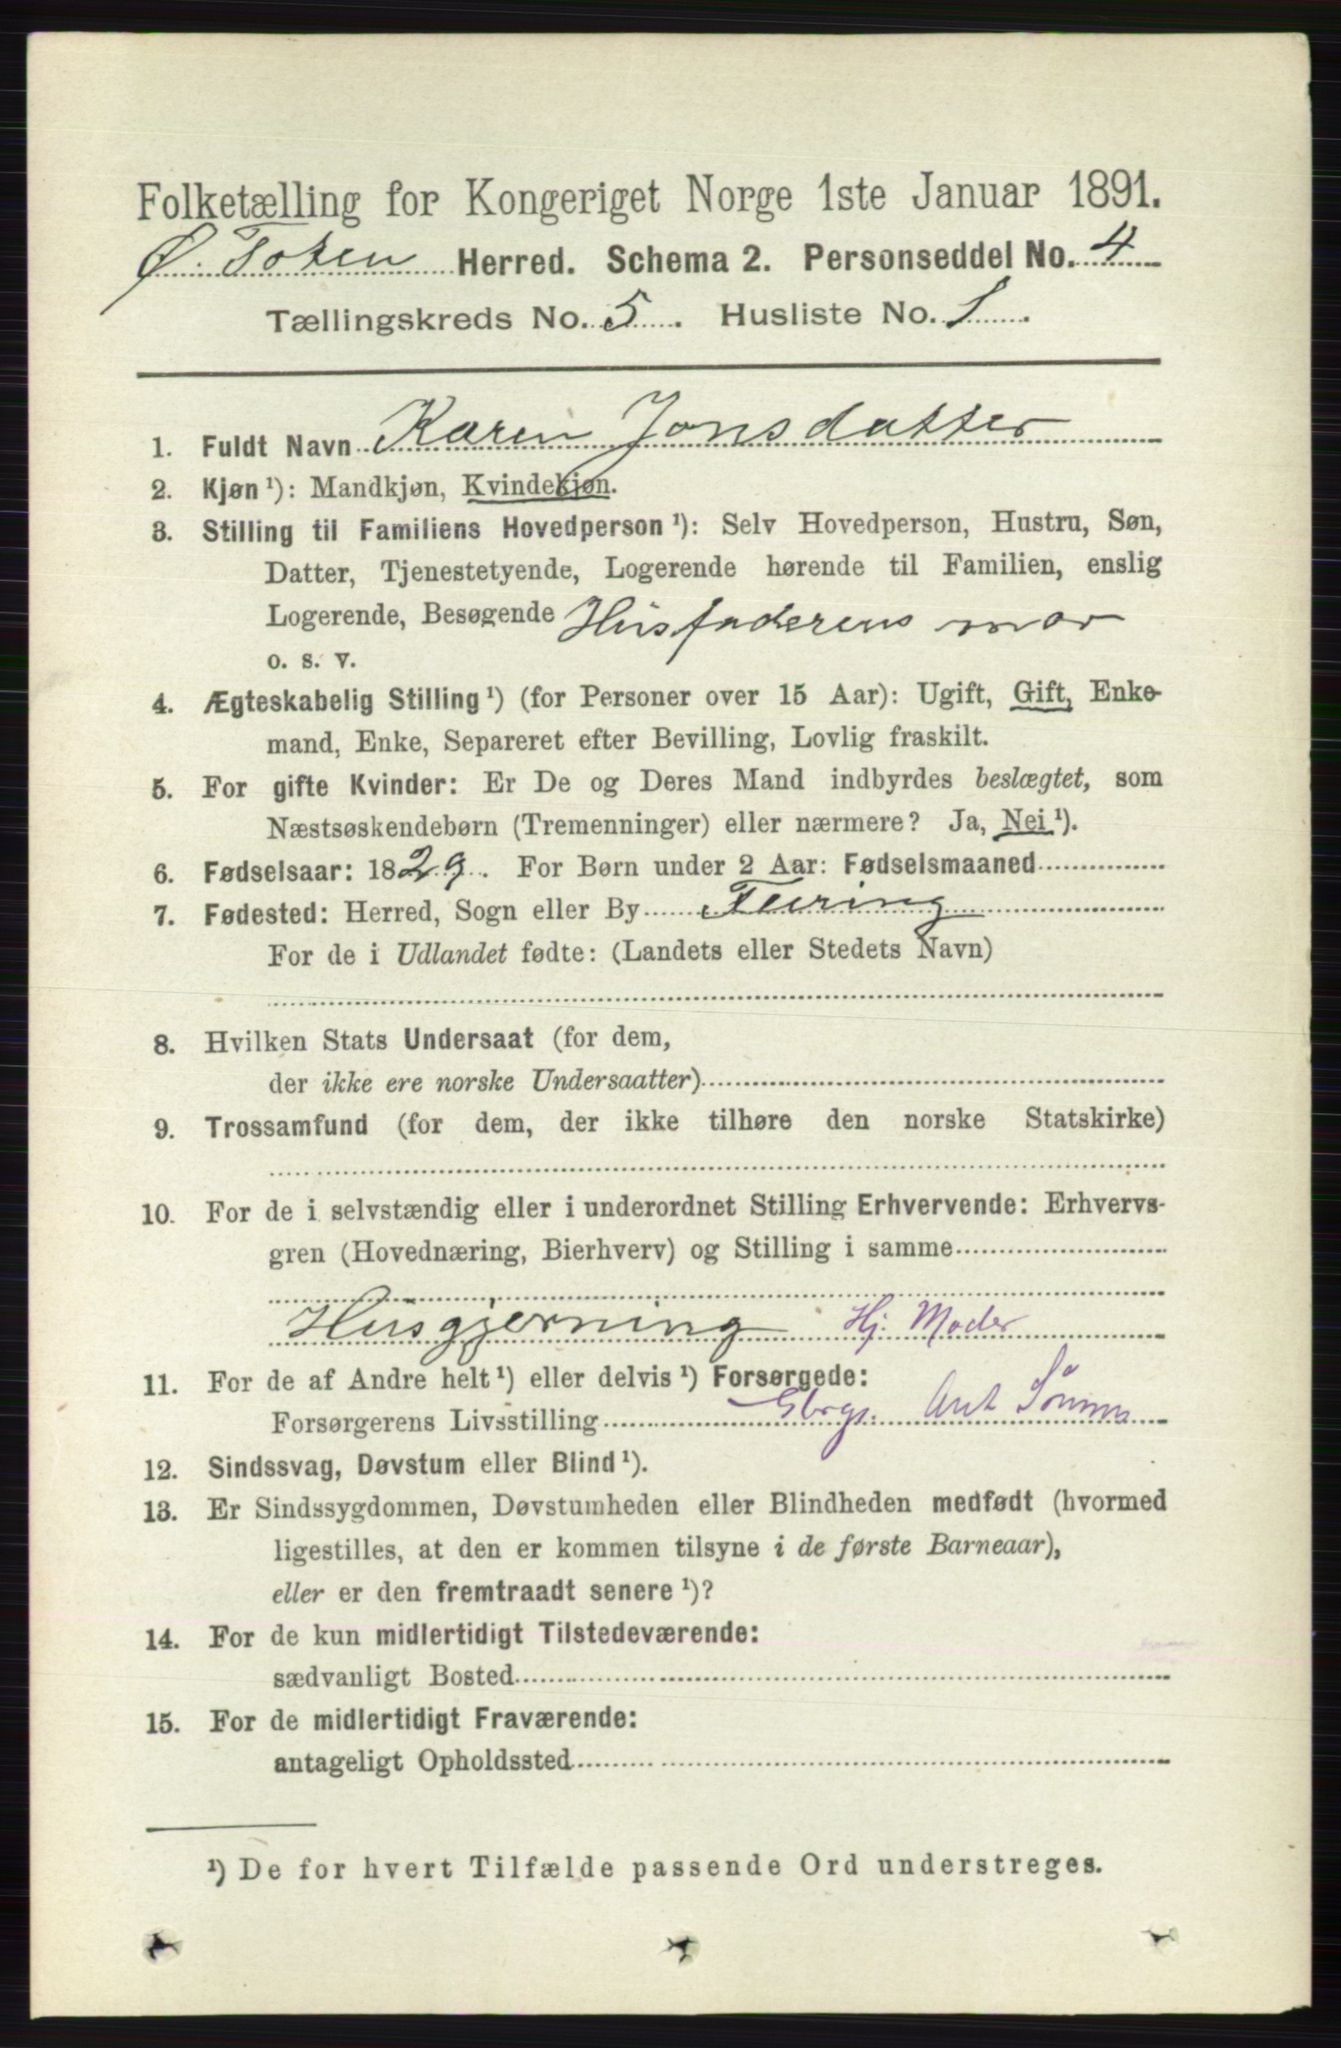 Folketælling for Kongeriget Norge 1ste Januar 1891.
Ø. Toten Herred. Schema 2. Personseddel No. 4
Tællingskreds No. 5. Husliste No. 1.
1. Fuldt Navn Karen Jonsdatter
2. Kjøn ¹): Mandkjøn, Kvindekjøn.
3. Stilling til Familiens Hovedperson ¹): Selv Hovedperson, Hustru, Søn,
Datter, Tjenestetyende, Logerende hørende til Familien, enslig
Logerende, Besøgende Husfaderens mor
o. s. v.
4. Ægteskabelig Stilling ¹) (for Personer over 15 Aar): Ugift, Gift, Enke-
mand, Enke, Separeret efter Bevilling, Lovlig fraskilt.
5. For gifte Kvinder: Er De og Deres Mand indbyrdes beslægtet, som
Næstsøskendebørn (Tremenninger) eller nærmere? Ja, Nei ¹).
6. Fødselsaar: 1829. For Børn under 2 Aar: Fødselsmaaned
7. Fødested: Herred, Sogn eller By Feiring
For de i Udlandet fødte: (Landets eller Stedets Navn)
8. Hvilken Stats Undersaat (for dem,
der ikke ere norske Undersaatter)
9. Trossamfund (for dem, der ikke tilhøre den norske Statskirke)
10. For de i selvstændig eller i underordnet Stilling Erhvervende: Erhvervs-
gren (Hovednæring, Bierhverv) og Stilling i samme
Husgjerning Hj. Moder
11. For de af Andre helt ¹) eller delvis ¹) Forsørgede:
Forsørgerens Livsstilling Gbrgs.
12. Sindssvag, Døvstum eller Blind ¹).
13. Er Sindssygdommen, Døvstumheden eller Blindheden medfødt (hvormed
ligestilles, at den er kommen tilsyne i de første Barneaar),
eller er den fremtraadt senere ¹)?
14. For de kun midlertidigt Tilstedeværende:
sædvanligt Bosted
15. For de midlertidigt Fraværende:
antageligt Opholdssted
¹) De for hvert Tilfælde passende Ord understreges.